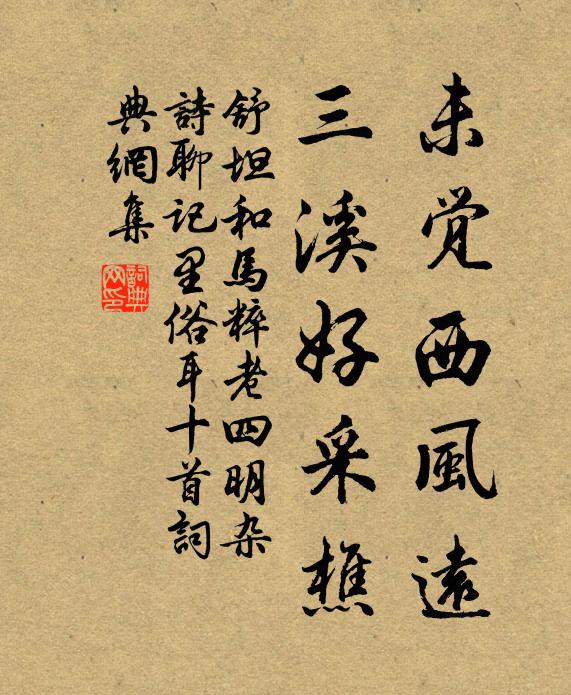 未觉西風遠
三溪好采樵
舒坦和馬粹老四明杂
詩聊記里俗耳十首詞
典網集
詞典网印